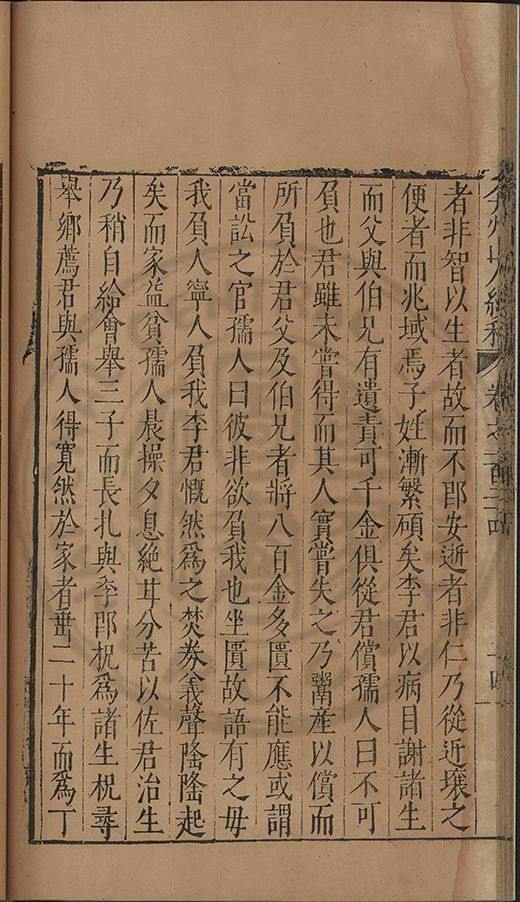 者非智以生者故而不即安逝者非仁乃從近壤之
便者而兆域焉子姓漸繁碩矣李君以病目謝諸生
而父與伯兄有遺責可千金俱從君償孺人曰不可
負也君雖未嘗得而其人實嘗失之乃鬻產以償而
所負於君父及伯兄者將八百金多匱不能應或謂
當訟之官孺人曰彼非欲負我也坐匱故語有之毋
我負人寧人負我李君慨然為之焚券義聲隆隆起
矣而家益貧孺人晨操夕息絕甘分苦以佐君治生
乃稍自給會舉三子而長札與季即柷為諸生柷尋
舉鄉薦君與孺人得寬然於家者垂二十年而為丁